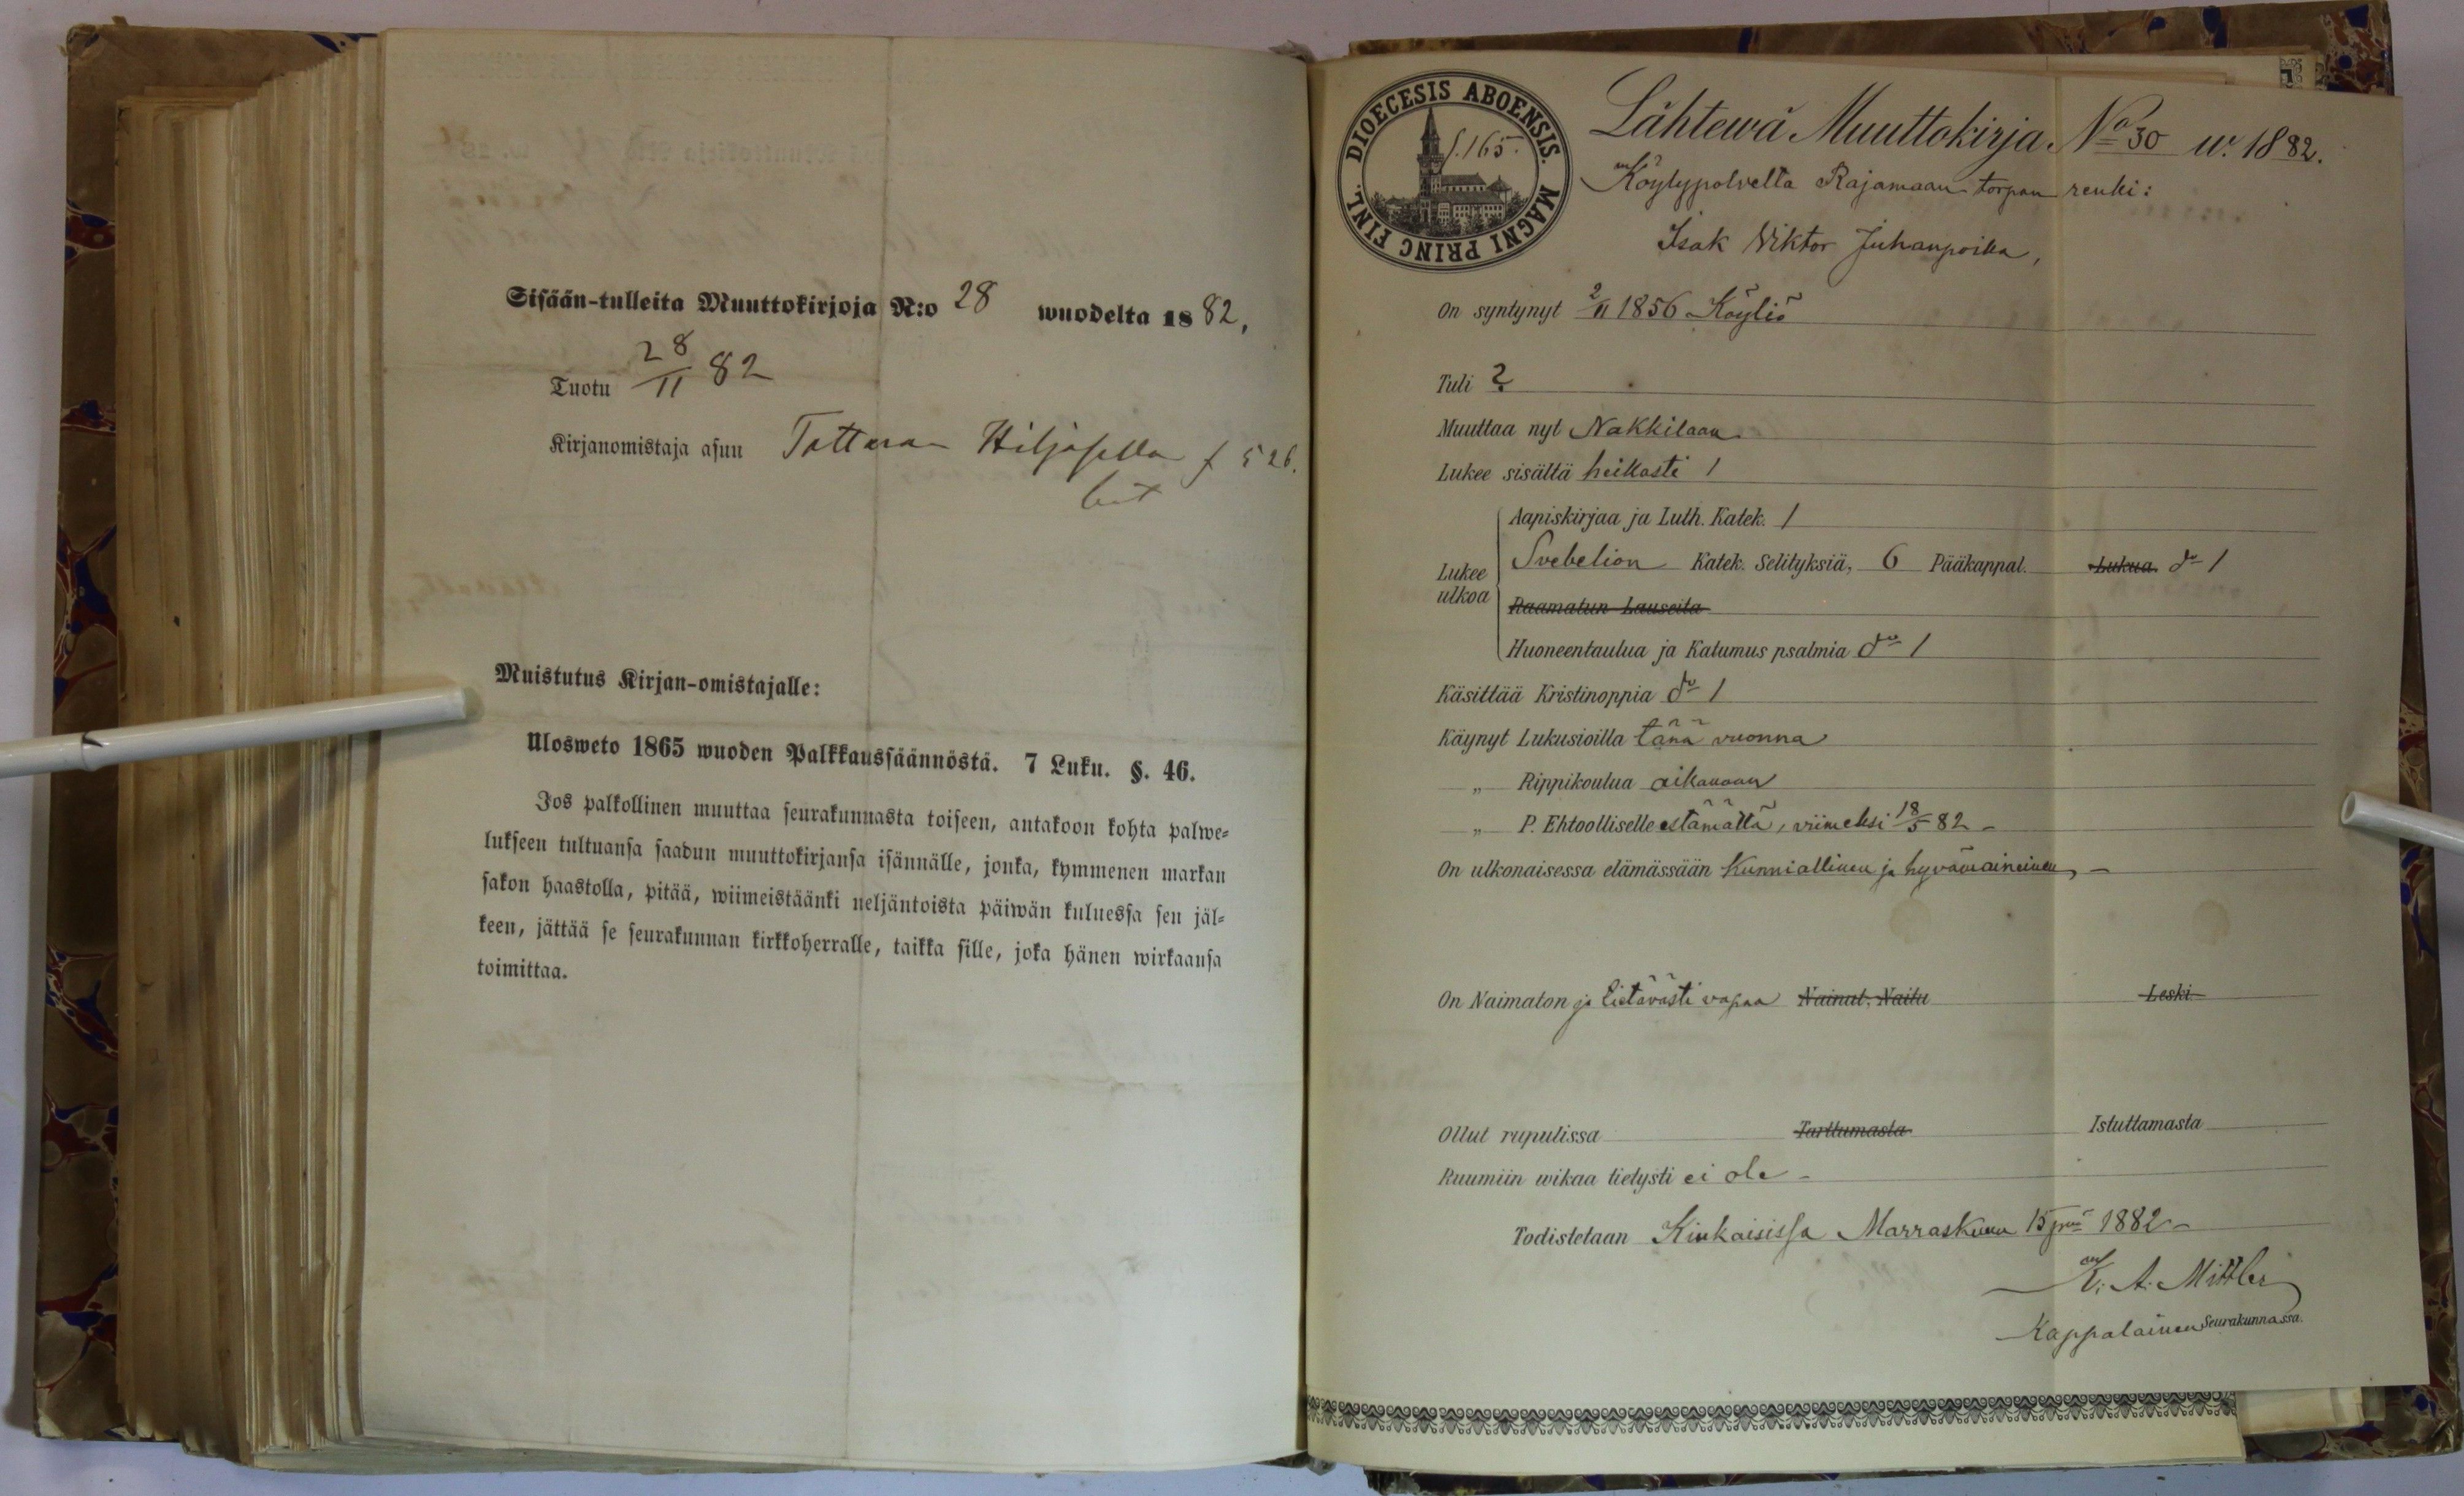 Sisään-tulleita Muuttokirjoja N:o 28 wuodelta 1882,
Tuotu 28/11 82
Kirjanomistaja asuu Tattaran Hiljasella f 526.
Muistutus Kirjan-omistajalle:
Ulosweto 1865 wuoden Palkkaussäännöstä. 7 Luku. §. 46.
Jos palkollinen muuttaa seurakunnasta toiseen, antakoon kohta palwe=
lukseen tultuansa saadun muuttokirjansa isännälle, jonka, kymmenen markan
sakon haastolla, pitää, wiimeistäänki neljäntoista päiwän kuluessa sen jäl=
keen, jättää se seurakunnan kirkkoherralle, taikka sille, joka hänen wirkaansa
toimittaa.
DIOECESIS ABOENSIS. MAGNI PRINC FINL.
f.165.
Lähtewä Muuttokirja No 30 w. 1882.
Köylypolvelta Rajamaan torpan renki:
Isak Viktor Juhanpoika,
On syntynyt 2/11 1856 Köyliö
Tuli ?
Muuttaa nyt Nakkilaan
Lukee sisältä heikosti 1
Aapiskirjaa ja Luth. Katek. 1
Lukee ulkoa
Svebelion Katek. Selityksiä, 6 Pääkappal. Lukua. do 1
Raamatun Lauseita
Huoneentaulua ja Katumus psalmia do 1
Käsittää Kristinoppia do 1
Käynyt Lukusioilla tänä vuonna
„ Rippikoulua aikanaan
„ P. Ehtoolliselle estämättä, viimeksi 18/5 82 -
On ulkonaisessa elämässään Kunniallinen ja hyvämaineinen, -
On Naimaton ja Tiettävästi vapaa Nainut, Naitu Leski
Ollut rupulissa Tarttumasta Istuttamasta
Ruumiin wikaa tietysti ei ole -
Todistetaan Kiukaisissa Marraskuun 15 pnä 1882 -
K. A. Mittler
Kappalainen Seurakunnassa.